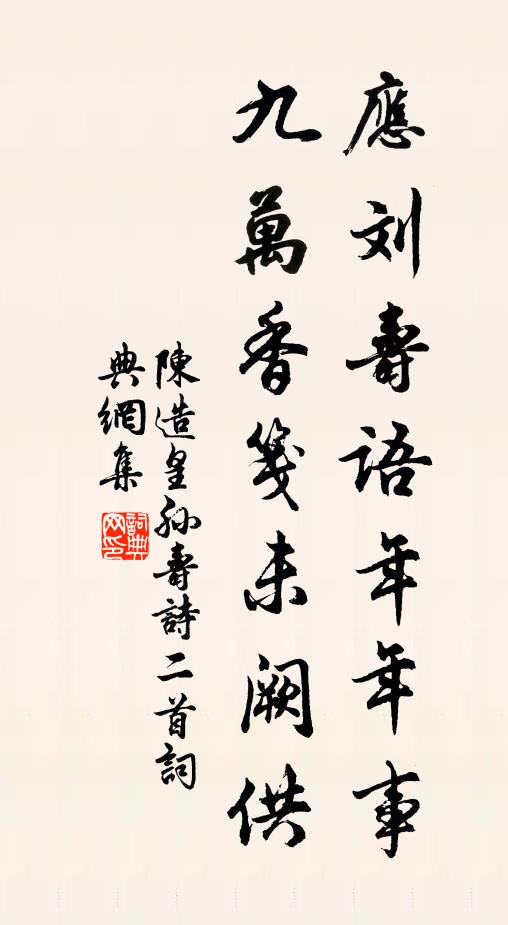 應刘壽語年年事
九萬香箋未闕供
陳造皇孙壽詩二首詞
典網集
詞典网印